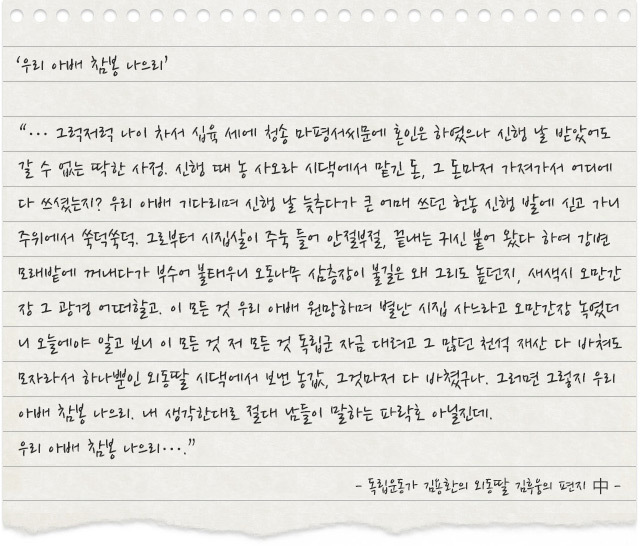 ‘우리 아배 참봉 나으리’
“··· 그럭저럭 나이 차서 십육 세에 청송 마평서씨문에 혼인은 하였으나 신행 날 받았어도
갈 수 없는 딱한 사정. 신행 때 농 사오라 시댁에서 맡긴 돈, 그 돈마저 가져가서 어디에
다 쓰셨는지? 우리 아배 기다리며 신행 날 늦추다가 큰 어매 쓰던 헌농 신행 발에 싣고 가니
주위에서 쑥덕쑥덕. 그로부터 시집살이 주눅 들어 안절부절, 끝내는 귀신 붙어 왔다 하여 강변
모래밭에 꺼내다가 부수어 불태우니 오동나무 삼층장이 불길은 왜 그리도 높던지, 새색시 오만간
장 그 광경 어떠할고. 이 모든 것 우리 아배 원망하며 별난 시집 사느라고 오만간장 녹였더
니 오늘에야 알고 보니 이 모든 것 저 모든 것 독립군 자금 대려고 그 많던 천석 재산 다 바쳐도
모자라서 하나뿐인 외동딸 시댁에서 보낸 농값, 그것마저 다 바쳤구나. 그러면 그렇지 우리
아배 참봉 나으리. 내 생각한대로 절대 남들이 말하는 파락호 아닐진데.
우리 아배 참봉 나으리···.”
- 독립운동가 김용환의 외동딸 김후웅의 편지 中 -